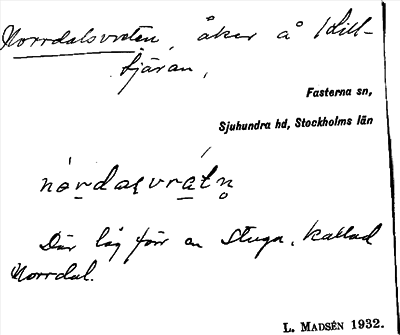 Norrdalsvreten, åker å /Lill-
tjäran,
Fasterna sn,
Sjuhundra hd, Stockholms län
Där låg förr en stuga, kallad
Norrdal.
L. MADSÉN 1932.